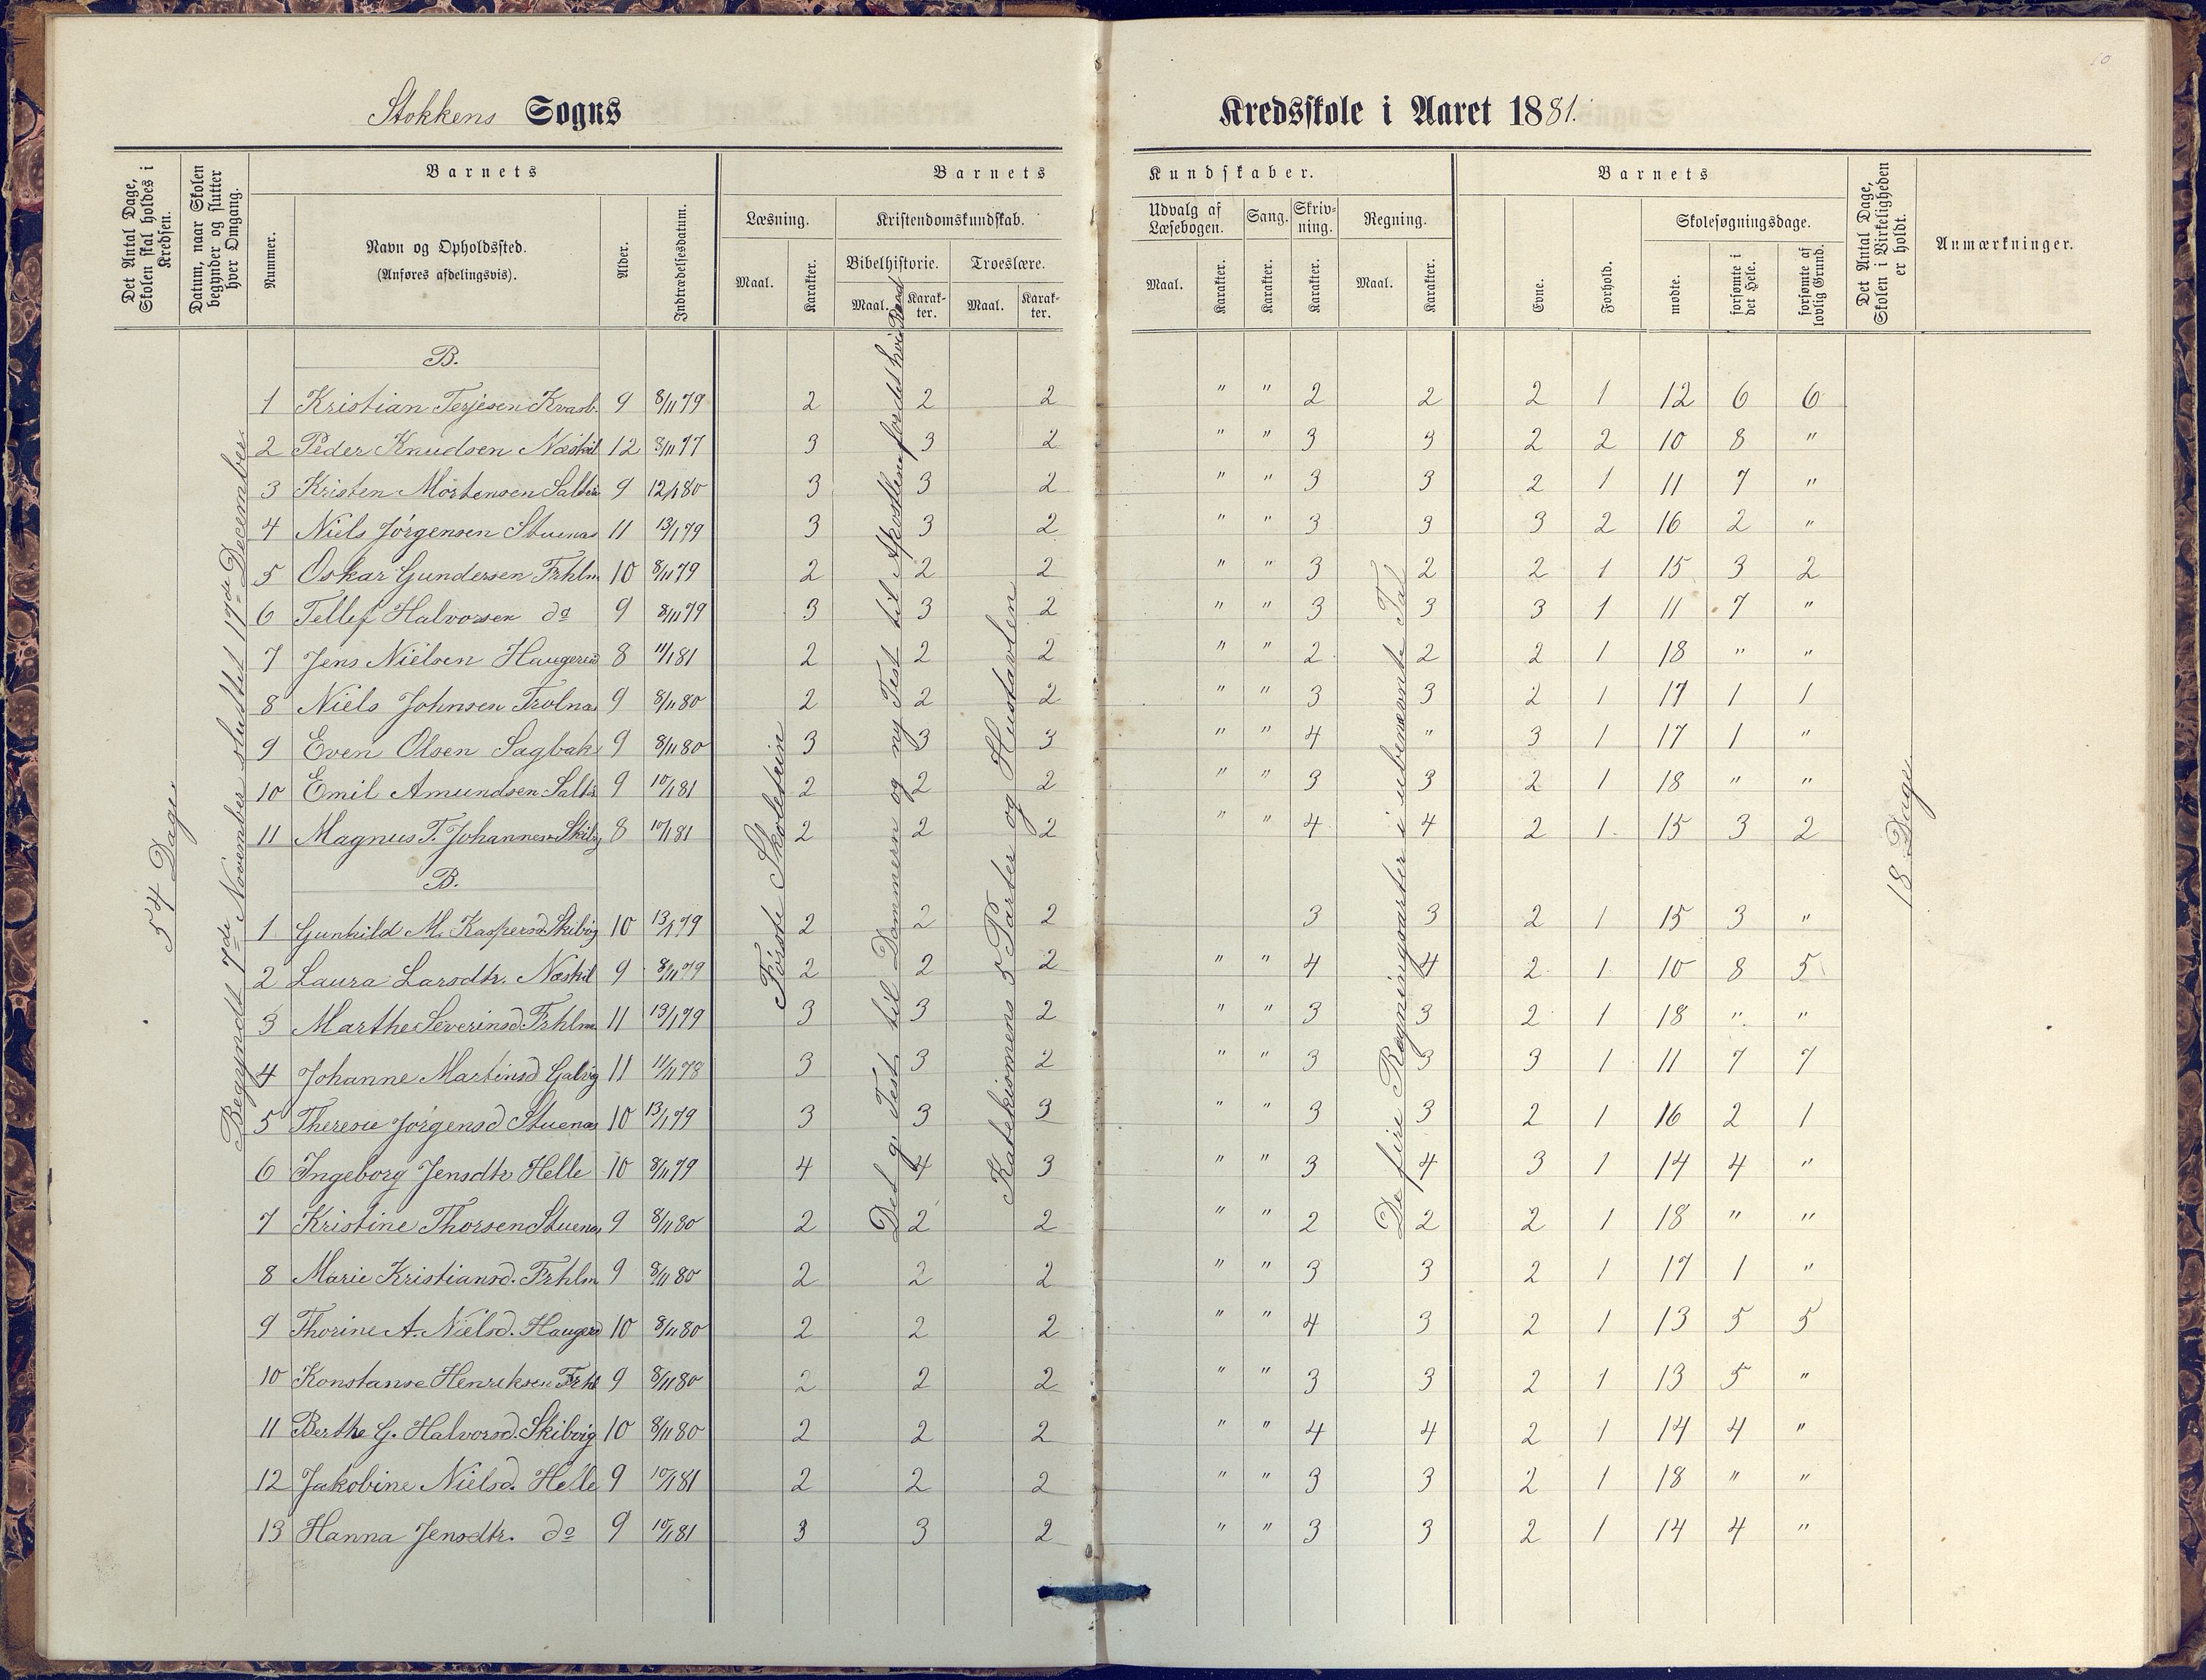 10
Stokkens Sogns
Kredsskole i Aaret 1881.
Det Antal Dage, Skolen skal holdes i Kredsen.
Datum, naar Skolen begynder og slutter hver Omgang.
Barnets
Nummer.
Navn og Opholdssted.
(Anføres afdelingsvis).
Alder.
Indtrædelsesdatum.
Barnets
Kundskaber.
Læsning.
Maal.
Karakter.
Kristendomskundskab.
Bibelhistorie.
Maal.
Karakter.
Troeslære.
Maal.
Karakter.
Udvalg af Læsebogen.
Maal.
Karakter.
Sang.
Karakter.
Skrivning.
Karakter.
Regning.
Maal.
Karakter.
Barnets
Evne.
Forhold.
Skolesøgningsdage.
mødte.
forsømte i det Hele.
forsømte af lovlig Grund.
Det Antal Dage, Skolen i Virkeligheden er holdt.
Anmærkninger.
54 Dage.
Begyndt 7de November sluttet 17de December.
Første Skoletrin
Det g. Test. til Dommern og ny Test til Apostlen
Katekismens 5 Parter og Hustavlen
De fire Regningsarter i ubenævnte Tal
18 Dage
B.
1 Kristian Terjesen Kvasb. 9 8/11 79 2 2 2 " " 2 2 2 1 12 6 6
2 Peder Knudsen Næskil 12 8/11 77 3 3 2 " " 3 3 2 2 10 8 "
3 Kristen Mortensen Salter 9 12/1 80 3 3 2 " " 3 3 2 1 11 7 "
4 Niels Jørgensen Stuenæs 11 13/1 79 3 3 2 " " 3 3 3 2 16 2 "
5 Oskar Gundersen Frhlm 10 8/11 79 2 2 2 " " 3 2 2 1 15 3 2
6 Tellef Halvorsen do 9 8/11 79 3 3 2 " " 3 3 3 1 11 7 "
7 Jens Nielsen Haugerød 8 11/1 81 2 2 2 " " 2 2 2 1 18 " "
8 Niels Johnsen Trolnæs 9 8/11 80 2 2 2 " " 3 3 2 1 17 1 1
9 Even Olsen Sagbak 9 8/11 80 3 3 3 " " 4 " 3 1 17 1 "
10 Emil Amundsen Saltr 9 10/1 81 2 2 2 " " 3 3 2 1 18 " "
11 Magnus T. Johannes Skibvg 8 10/1 81 2 2 2 " " 4 4 2 1 15 3 2
B.
1 Gunhild M. Kaspersd Skibvig 10 13/1 79 2 2 2 3 3 2 1 15 3 "
2 Laura Larsdtr. Næskil 9 8/11 79 2 2 2 " " 4 4 2 1 10 8 5
3 Marthe Severinsd Frhlm 11 13/1 79 3 3 2 " " 3 3 2 1 18 " "
4 Johanne Martinsd Galvig 11 11/11 78 3 3 2 " " 3 3 3 1 11 7 7
5 Theresie Jørgensd Stuenæs 10 13/1 79 3 3 3 " " 3 3 2 1 16 2 1
6 Ingeborg Jensdtr Helle 10 8/11 79 4 4 3 " " 3 4 3 1 14 4 "
7 Kristine Thorsen Stuenæs 9 8/11 80 2 2 2 " " 2 2 2 1 18 " "
8 Marie Kristiansd. Frhlm 9 8/11 80 2 2 2 " " 3 3 2 1 17 1 "
9 Thorine A. Nielsd. Haugerd 10 8/11 80 2 2 2 " " 4 3 2 1 13 5 5
10 Konstanse Henriksen Frhl 9 8/11 80 2 2 2 " " 3 3 2 1 13 5 "
11 Berthe G. Halvorsd. Skibvig 10 8/11 80 2 2 2 " " 4 4 2 1 14 4 "
12 Jakobine Nielsd. Helle 9 10/1 81 2 2 2 " " 3 3 2 1 18 " "
13 Hanna Jensdtr. do 9 10/1 81 3 3 2 " " 3 3 2 1 14 4 "